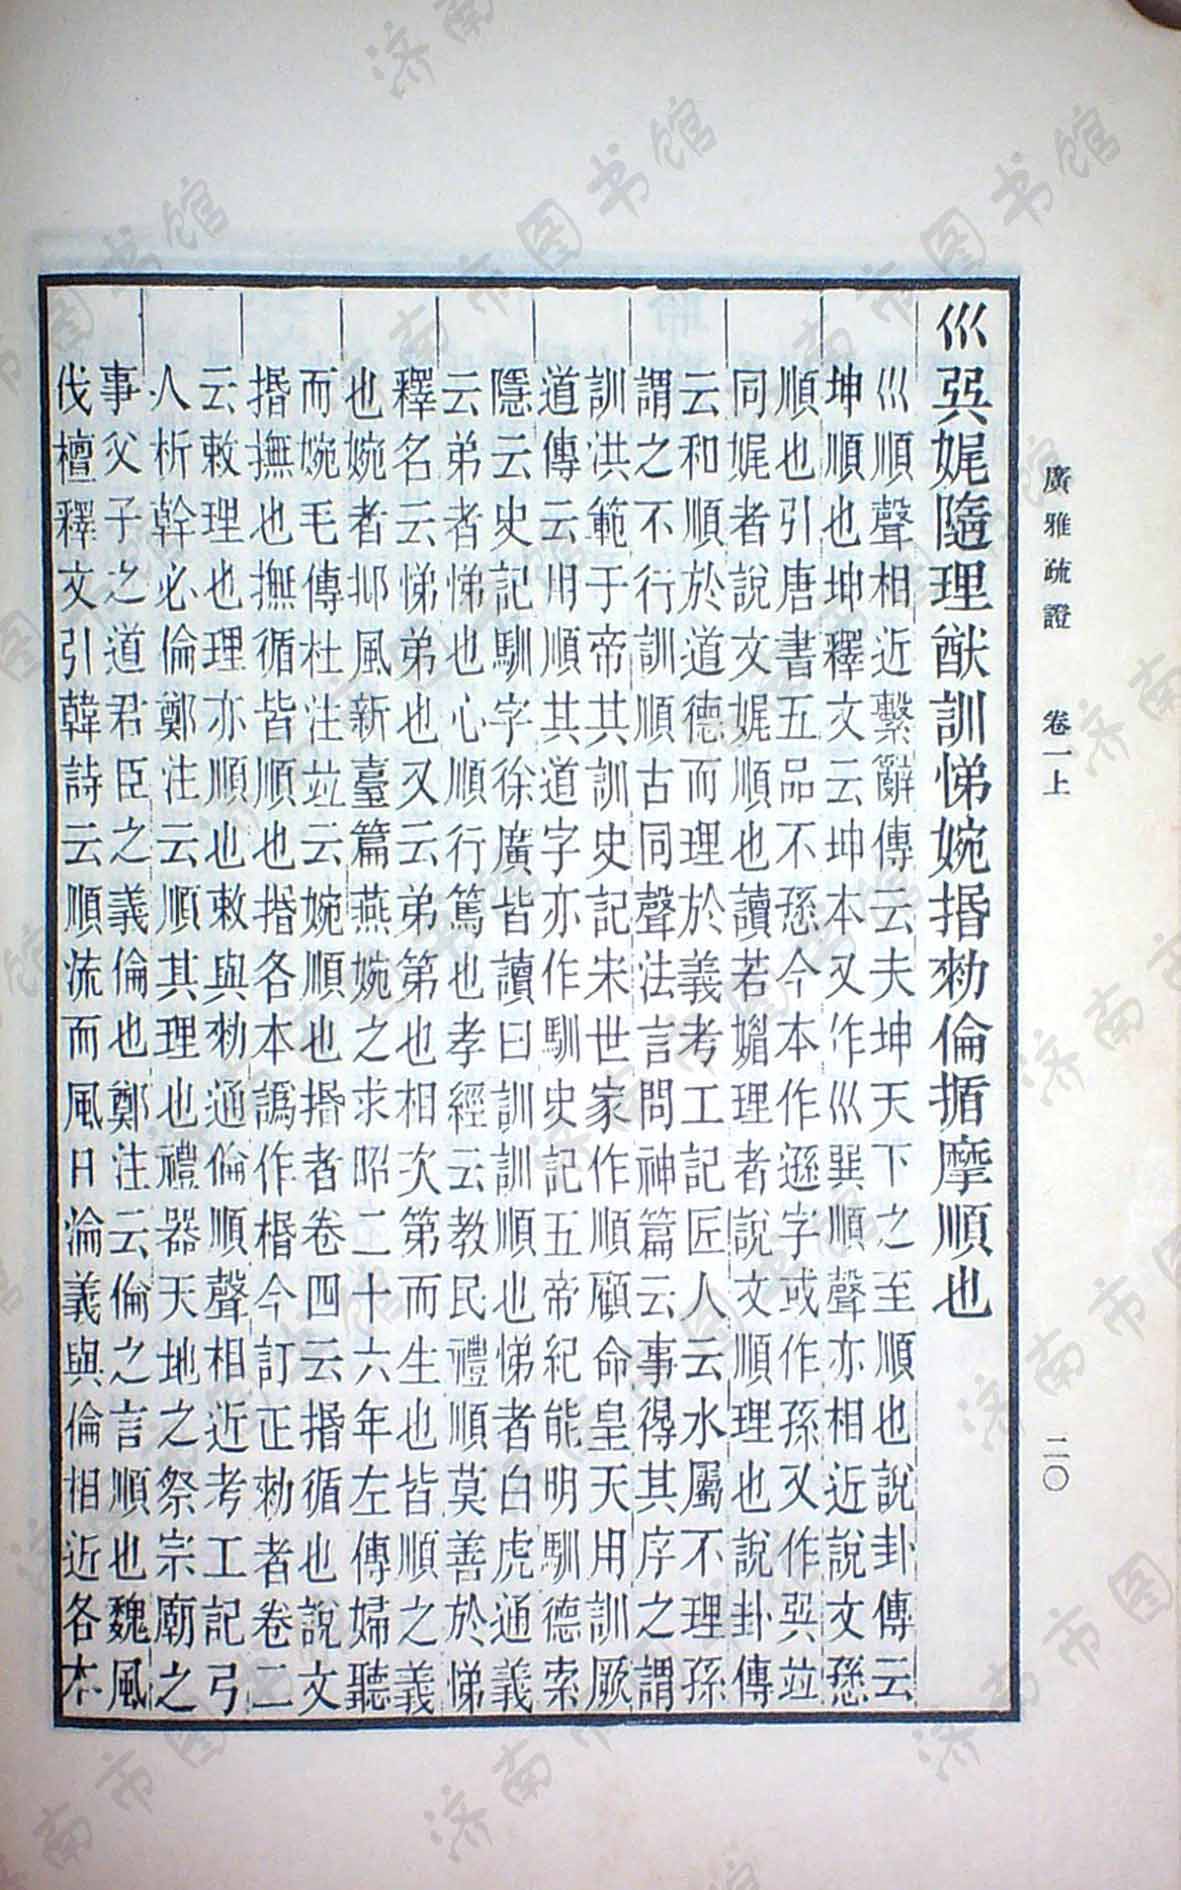 廣雅疏證　卷一上　二〇
巛㢲娓隨理猷訓悌婉揗勑倫揗摩順也
巛順聲相近繫辭傳云夫坤天下之至順也說卦傳云
坤順也坤釋文云坤本又作巛巽順聲亦相近說文愻
順也引唐書五品不愻今本作遜字或作孫又作㢲竝
同娓者說文娓順也讀若媚理者說文順理也說卦傳
云和順於道德而理於義考工記匠人云水屬不理孫
謂之不行訓順古同聲法言問神篇云事得其序之謂
訓洪範于帝其訓史記宋世家作順顧命皇天用訓厥
道傳云用順其道字亦作馴史記五帝紀能明馴德索
隱云史記馴字徐廣皆讀曰訓訓順也悌者白虎通義
云弟者悌也心順行篤也孝經云教民禮順莫善於悌
釋名云悌弟也又云弟第也相次第而生也皆順之義
也婉者邶風新臺篇燕婉之求昭二十六年左傳婦聽
而婉毛傳杜注竝云婉順也揗者卷四云揗循也說文
揗撫也撫循皆順也揗各本譌作楯今訂正勑者卷二
云敕理也理亦順也敕與勑通倫順聲相近考工記弓
人析幹必倫鄭注云順其理也禮器天地之祭宗廟之
事父子之道君臣之義倫也鄭注云倫之言順也魏風
伐檀釋文引韓詩云順流而風曰淪義與倫相近各本